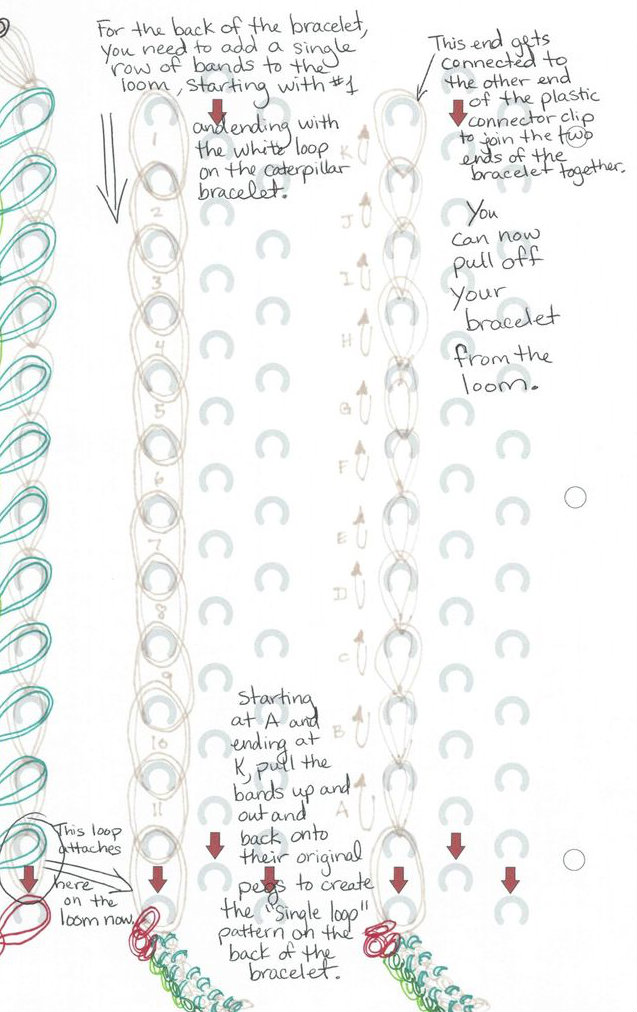 For the back of the bracelet,
you need to add a single
row of bands to the
loom, starting with #1
and ending with
the white loop
on the caterpillar
bracelet.
1
2
3
4
5
6
7
8
9
10
11
This loop
attaches
here
on the
loom now.
Starting
at A and
ending at
K, pull the
bands up and
out and
back onto
their original
pegs to create
the "single loop"
pattern on the
back of the
bracelet.
K
J
I
H
G
F
E
D
C
B
A
This end gets
connected to
the other end
of the plastic
connector clip
to join the two
ends of the
bracelet together.
You
can now
pull off
your
bracelet
from the
loom.